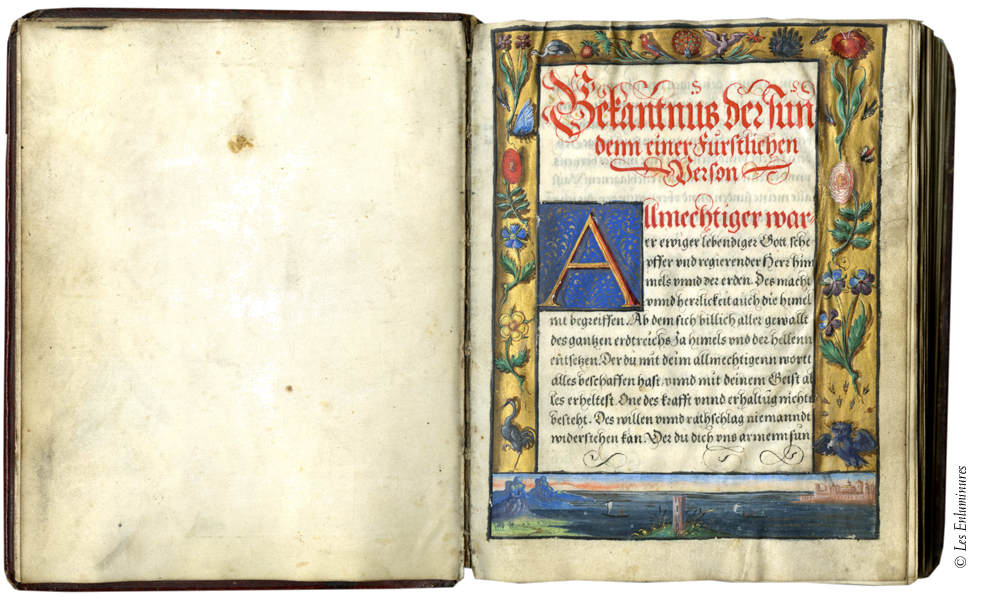 Bekantnus der sün
denn einer Fürstlichen
Person
Allmechtiger war-
er ewiger lebendiger Gott, sche
pffer vnd regierender Herr him
mels vnnd der erden. Des macht
vnnd herrlickeit auch die himel
nit begreiffen. Ab dem sich billich aller gewallt
des gantzen erdtreichs Ja himels vnd der hellenn
entsetzen. Der du mit deim allmechtigenn wortt
alles beschaffen hast, vnnd mit deinem Geist al
les erheltest. One des krafft vnnd erhaltug nichts
besteht. Des willen vnnd rathschlag niemanndt
widerstehen kan. Der du dich vns armenn sün
© Les Enluminures